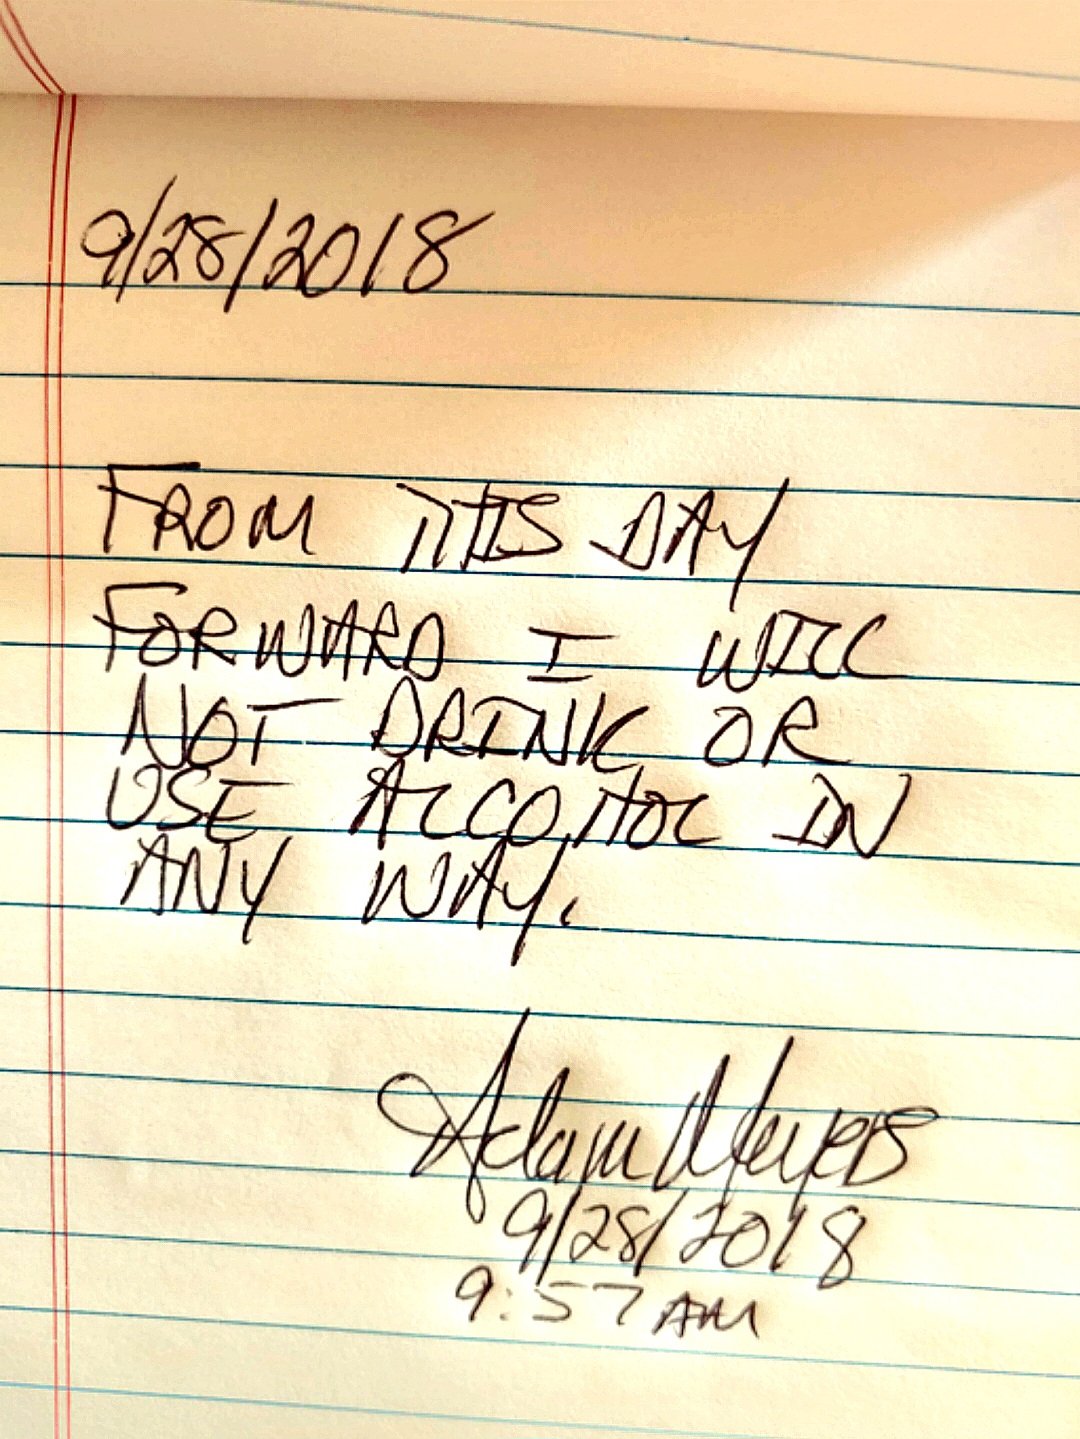 9/28/2018
FROM THIS DAY
FORWARD I WILL
NOT DRINK OR
USE ALCOHOL IN
ANY WAY.
Adam Meyers
9/28/2018
9:57 AM